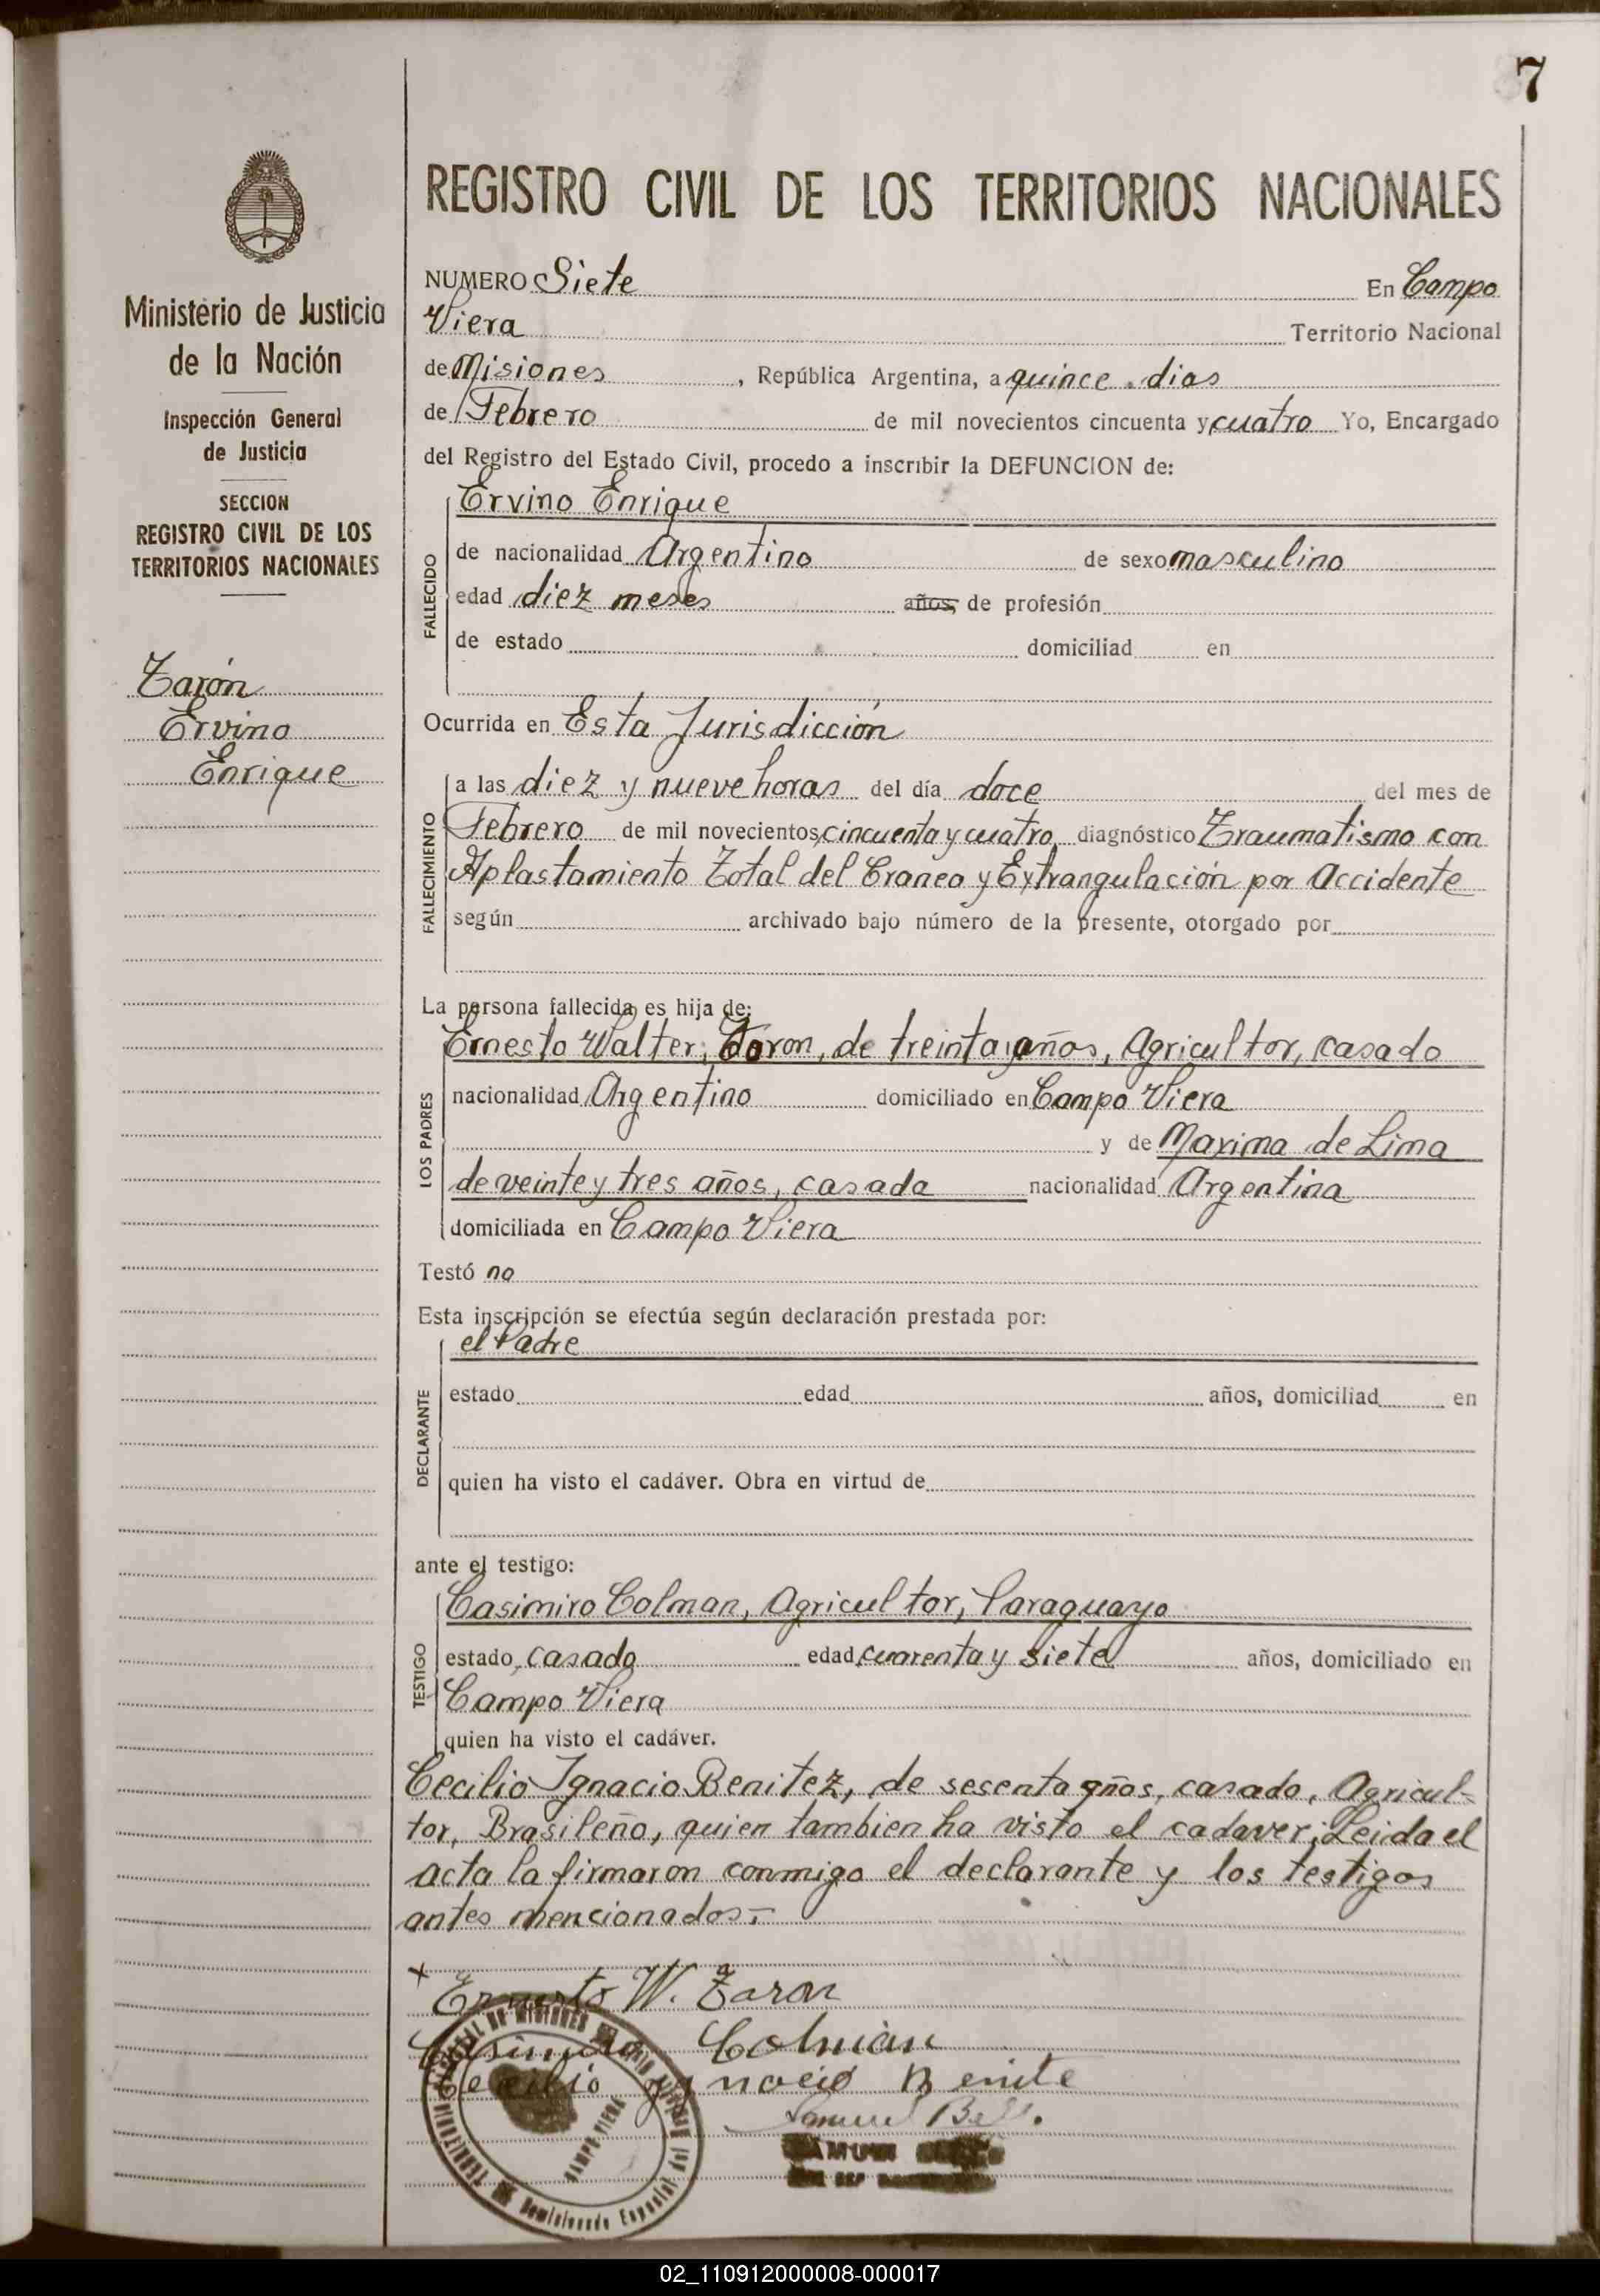 7
REGISTRO CIVIL DE LOS TERRITORIOS NACIONALES
Ministerio de Justicia
de la Nación
Inspección General
de Justicia
SECCION
REGISTRO CIVIL DE LOS
TERRITORIOS NACIONALES
Tarón
Ervino
Enrique
NUMERO Siete En Campo
Viera Territorio Nacional
de Misiones, República Argentina, a quince dias
de Febrero de mil novecientos cincuenta y cuatro Yo, Encargado
del Registro del Estado Civil, procedo a inscribir la DEFUNCION de:
FALLECIDO
Ervino Enrique
de nacionalidad Argentino de sexo masculino
edad diez meses años, de profesión
de estado domiciliad en
Ocurrida en Esta Jurisdicción
FALLECIMIENTO
a las diez y nueve horas del día doce del mes de
Febrero de mil novecientos cincuenta y cuatro diagnóstico Traumatismo con
Aplastamiento Total del Craneo y Extrangulación por Accidente
según archivado bajo número de la presente, otorgado por
La persona fallecida es hija de:
LOS PADRES
Ernesto Walter, Taron, de treinta años, Agricultor, casado
nacionalidad Argentino domiciliado en Campo Viera
y de Maxima de Lima
de veinte y tres años, casada nacionalidad Argentina
domiciliada en Campo Viera
Testó no
Esta inscripción se efectúa según declaración prestada por:
DECLARANTE
el Padre
estado edad años, domiciliad en
quien ha visto el cadáver. Obra en virtud de
ante el testigo:
TESTIGO
Casimiro Colman, Agricultor, Paraguayo
estado casado edad cuarenta y siete años, domiciliado en
Campo Viera
quien ha visto el cadáver.
Cecilio Ignacio Benitez, de sesenta años, casado, Agricul-
tor, Brasileño, quien tambien ha visto el cadaver; Leida el
acta la firmaron conmigo el declarante y los testigos
antes mencionados.-
x
Ernesto W. Taron
Casimiro Colman
Cecilio Ygnacio Benite
CAMPO VIERA
02_110912000008-000017